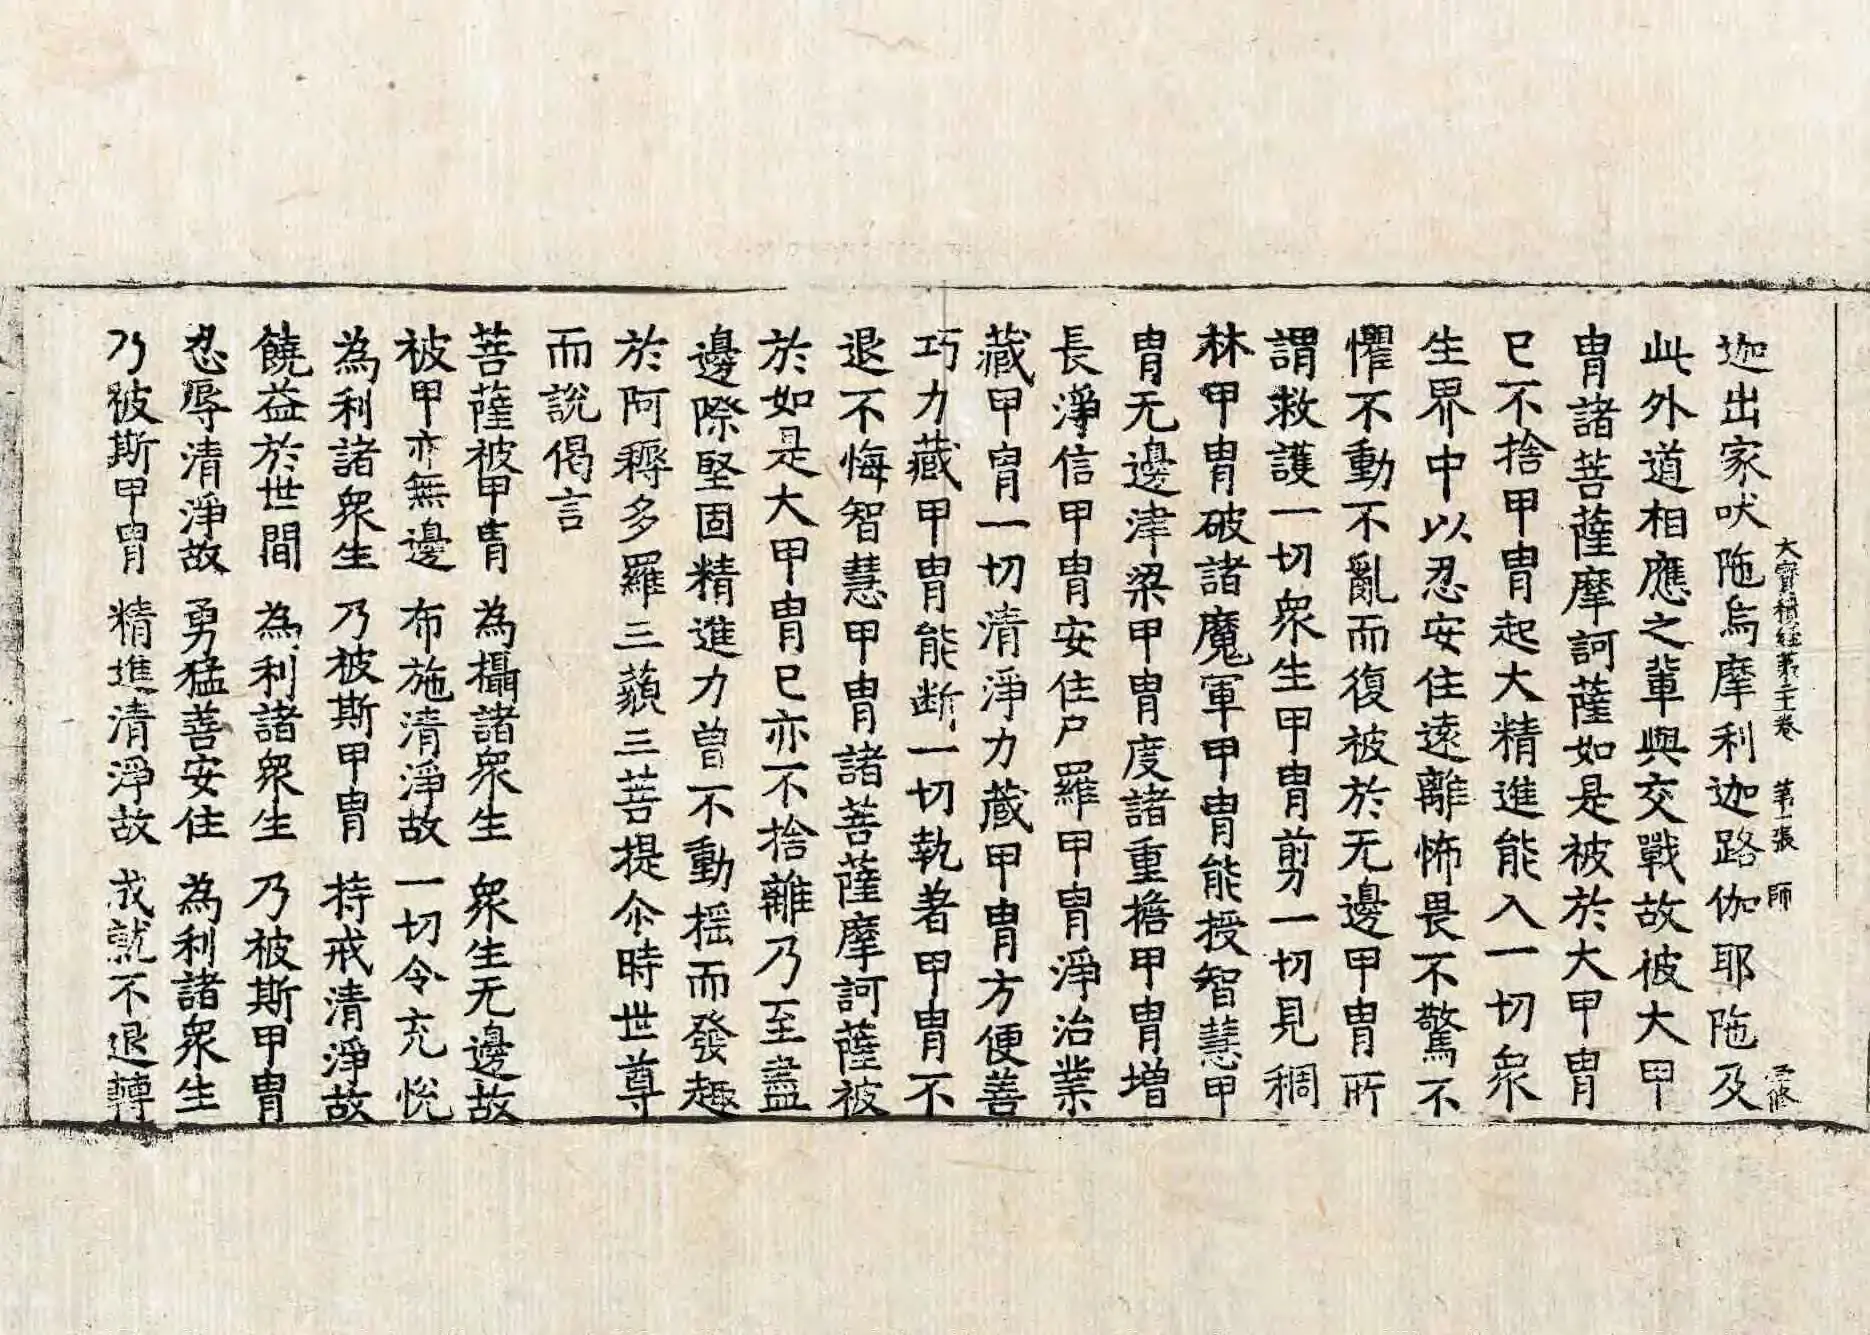 迦出家吠陁烏摩利迦路伽耶陁及
大寳積經第 卷 第 張 師
此外道相應之軰與交戰故被大甲
胄諸菩薩摩訶薩如是被於大甲胄
已不捨甲胄起大精進能入一切衆
生界中以忍安住遠離怖畏不驚不
懼不動不亂而復被於无邊甲胄所
謂救護一切衆生甲胄剪一切見稠
林甲胄破諸魔軍甲胄能授智慧甲
胄无邊津梁甲胄度諸重擔甲胄增
長淨信甲胄安住尸羅甲胄淨治業
藏甲胄一切清淨力藏甲胄方便善
巧力藏甲胄能断一切執著甲胄不
退不悔智慧甲胄諸菩薩摩訶薩被
於如是大甲胄已亦不捨離乃至盡
邊際堅固精進力曾不動揺而發趣
於阿耨多羅三藐三菩提尒時世尊
而說偈言
菩薩被甲胄 為攝諸衆生 衆生无邊故
被甲亦無邊 布施清淨故 一切令充悅
為利諸衆生 乃被斯甲胄 持戒清淨故
饒益於世間 為利諸衆生 乃被斯甲胄
忍辱清淨故 勇猛善安住 為利諸衆生
乃被斯甲胄 精進清淨故 成就不退轉